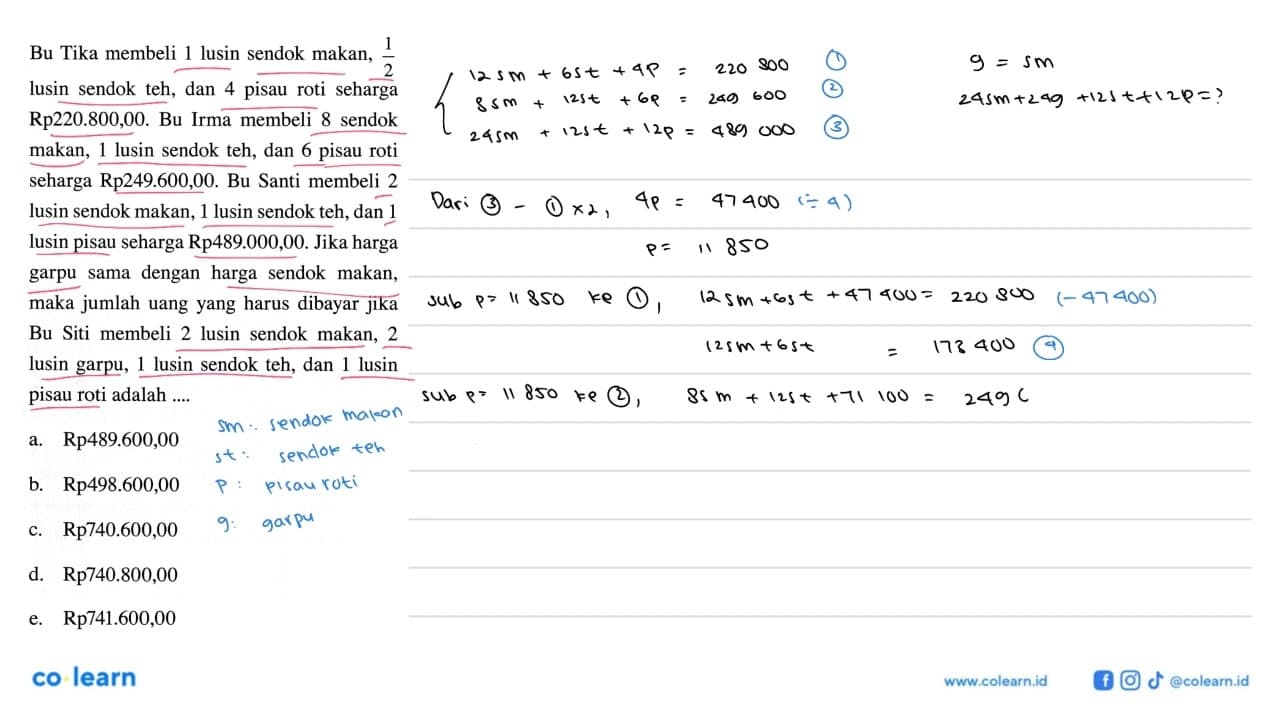 Bu Tika membeli 1 lusin sendok makan, 1/2
lusin sendok teh, dan 4 pisau roti seharga
Rp220.800,00. Bu Irma membeli 8 sendok
makan, 1 lusin sendok teh, dan 6 pisau roti
seharga Rp249.600,00. Bu Santi membeli 2
lusin sendok makan, 1 lusin sendok teh, dan 1
lusin pisau seharga Rp489.000,00. Jika harga
garpu sama dengan harga sendok makan,
maka jumlah uang yang harus dibayar jika
Bu Siti membeli 2 lusin sendok makan, 2
lusin garpu, 1 lusin sendok teh, dan 1 lusin
pisau roti adalah ....
a. Rp489.600,00
b. Rp498.600,00
c. Rp740.600,00
d. Rp740.800,00
e. Rp741.600,00
sm : sendok makan
st : sendok teh
P : pisau roti
g : garpu
12sm + 6st + 4P = 220 800 ①
8sm + 12st + 6P = 249 600 ②
24sm + 12st + 12p = 489 000 ③
g = sm
24sm+24g +12st+12p=?
Dari ③ - ① x2, 4p = 47400 (÷4)
P= 11 850
sub P= 11 850 ke ①, 12sm+6st + 47 400 = 220 800 (-47400)
12sm+6st = 173 400 ④
sub P= 11 850 ke ②, 8sm + 12st +71 100 = 249 6
co learn
www.colearn.id
@colearn.id